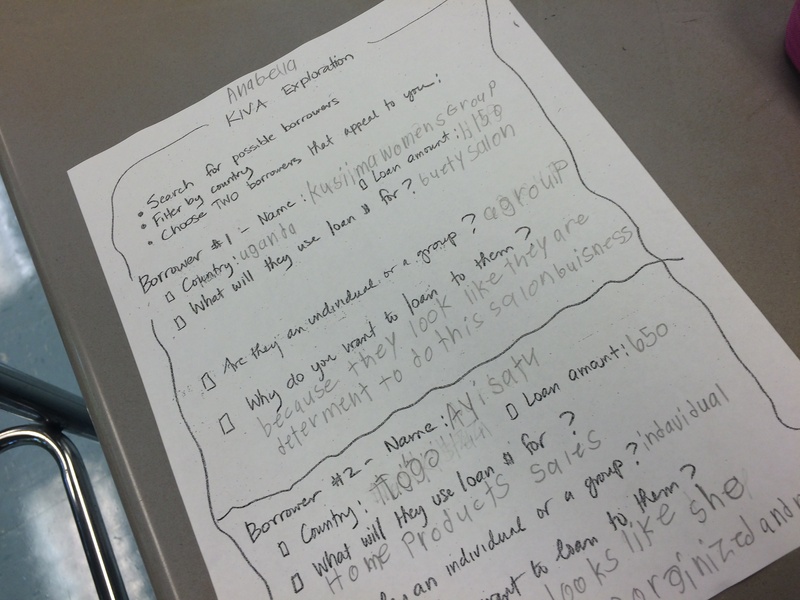 Anabella
KIVA Exploration
• Search for possible borrowers
• Filter by country
• Choose TWO borrowers that appeal to you:
Borrower #1 - Name: Kusiimawomens GrouP
Country: uganda Loan amount: 1153
What will they use loan $ for? buety salon
Are they an individual or a group? a grouP
Why do you want to loan to them?
because they look like they are
determent to do this salon buisness
Borrower #2 - Name: Ayisatu
Country: Togo Loan amount: 650
What will they use loan $ for?
Home Products sales
an individual or a group? indavidual
want to loan to them?
looks like she
orginized and